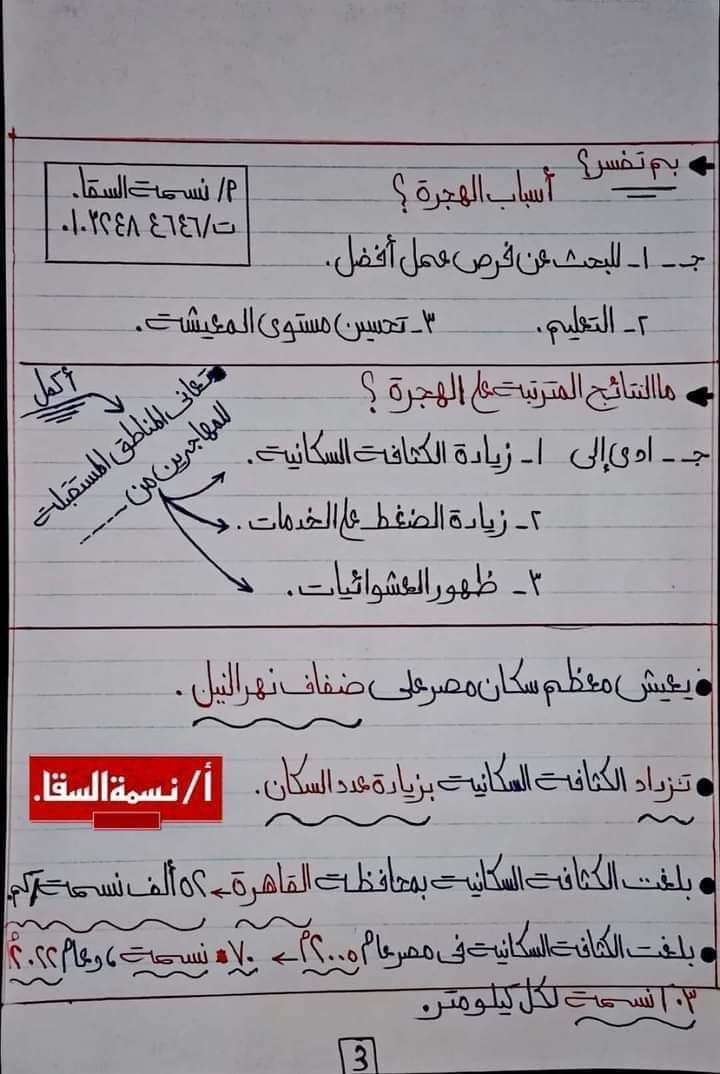 بم تفسر؟
أسباب الهجرة؟
م/ نسمة السقا.
ت/٤٦٤٦ ٠١٠٣٢٤٨
جـ - ١ - للبحث عن فرص عمل أفضل.
٢ - التعليم. ٣ - تحسين مستوى المعيشة.
ما النتائج المترتبة على الهجرة؟
أكمل
تعانى المناطق المستقبلة
للمهاجرين من -----
جـ - ادى إلى ١ - زيادة الكثافة السكانية.
٢ - زيادة الضغط على الخدمات.
٣ - ظهور العشوائيات.
يعيش معظم سكان مصر على ضفاف نهر النيل.
تزداد الكثافة السكانية بزيادة عدد السكان.
أ/ نسمة السقا.
بلغت الكثافة السكانية بمحافظة القاهرة ← ٥٢ ألف نسمة/كم.
بلغت الكثافة السكانية فى مصر عام ٢٠٠٥م ← ٧٠ نسمة، وعام ٢٠٢٢م
١٠٣ نسمة لكل كيلومتر.
3